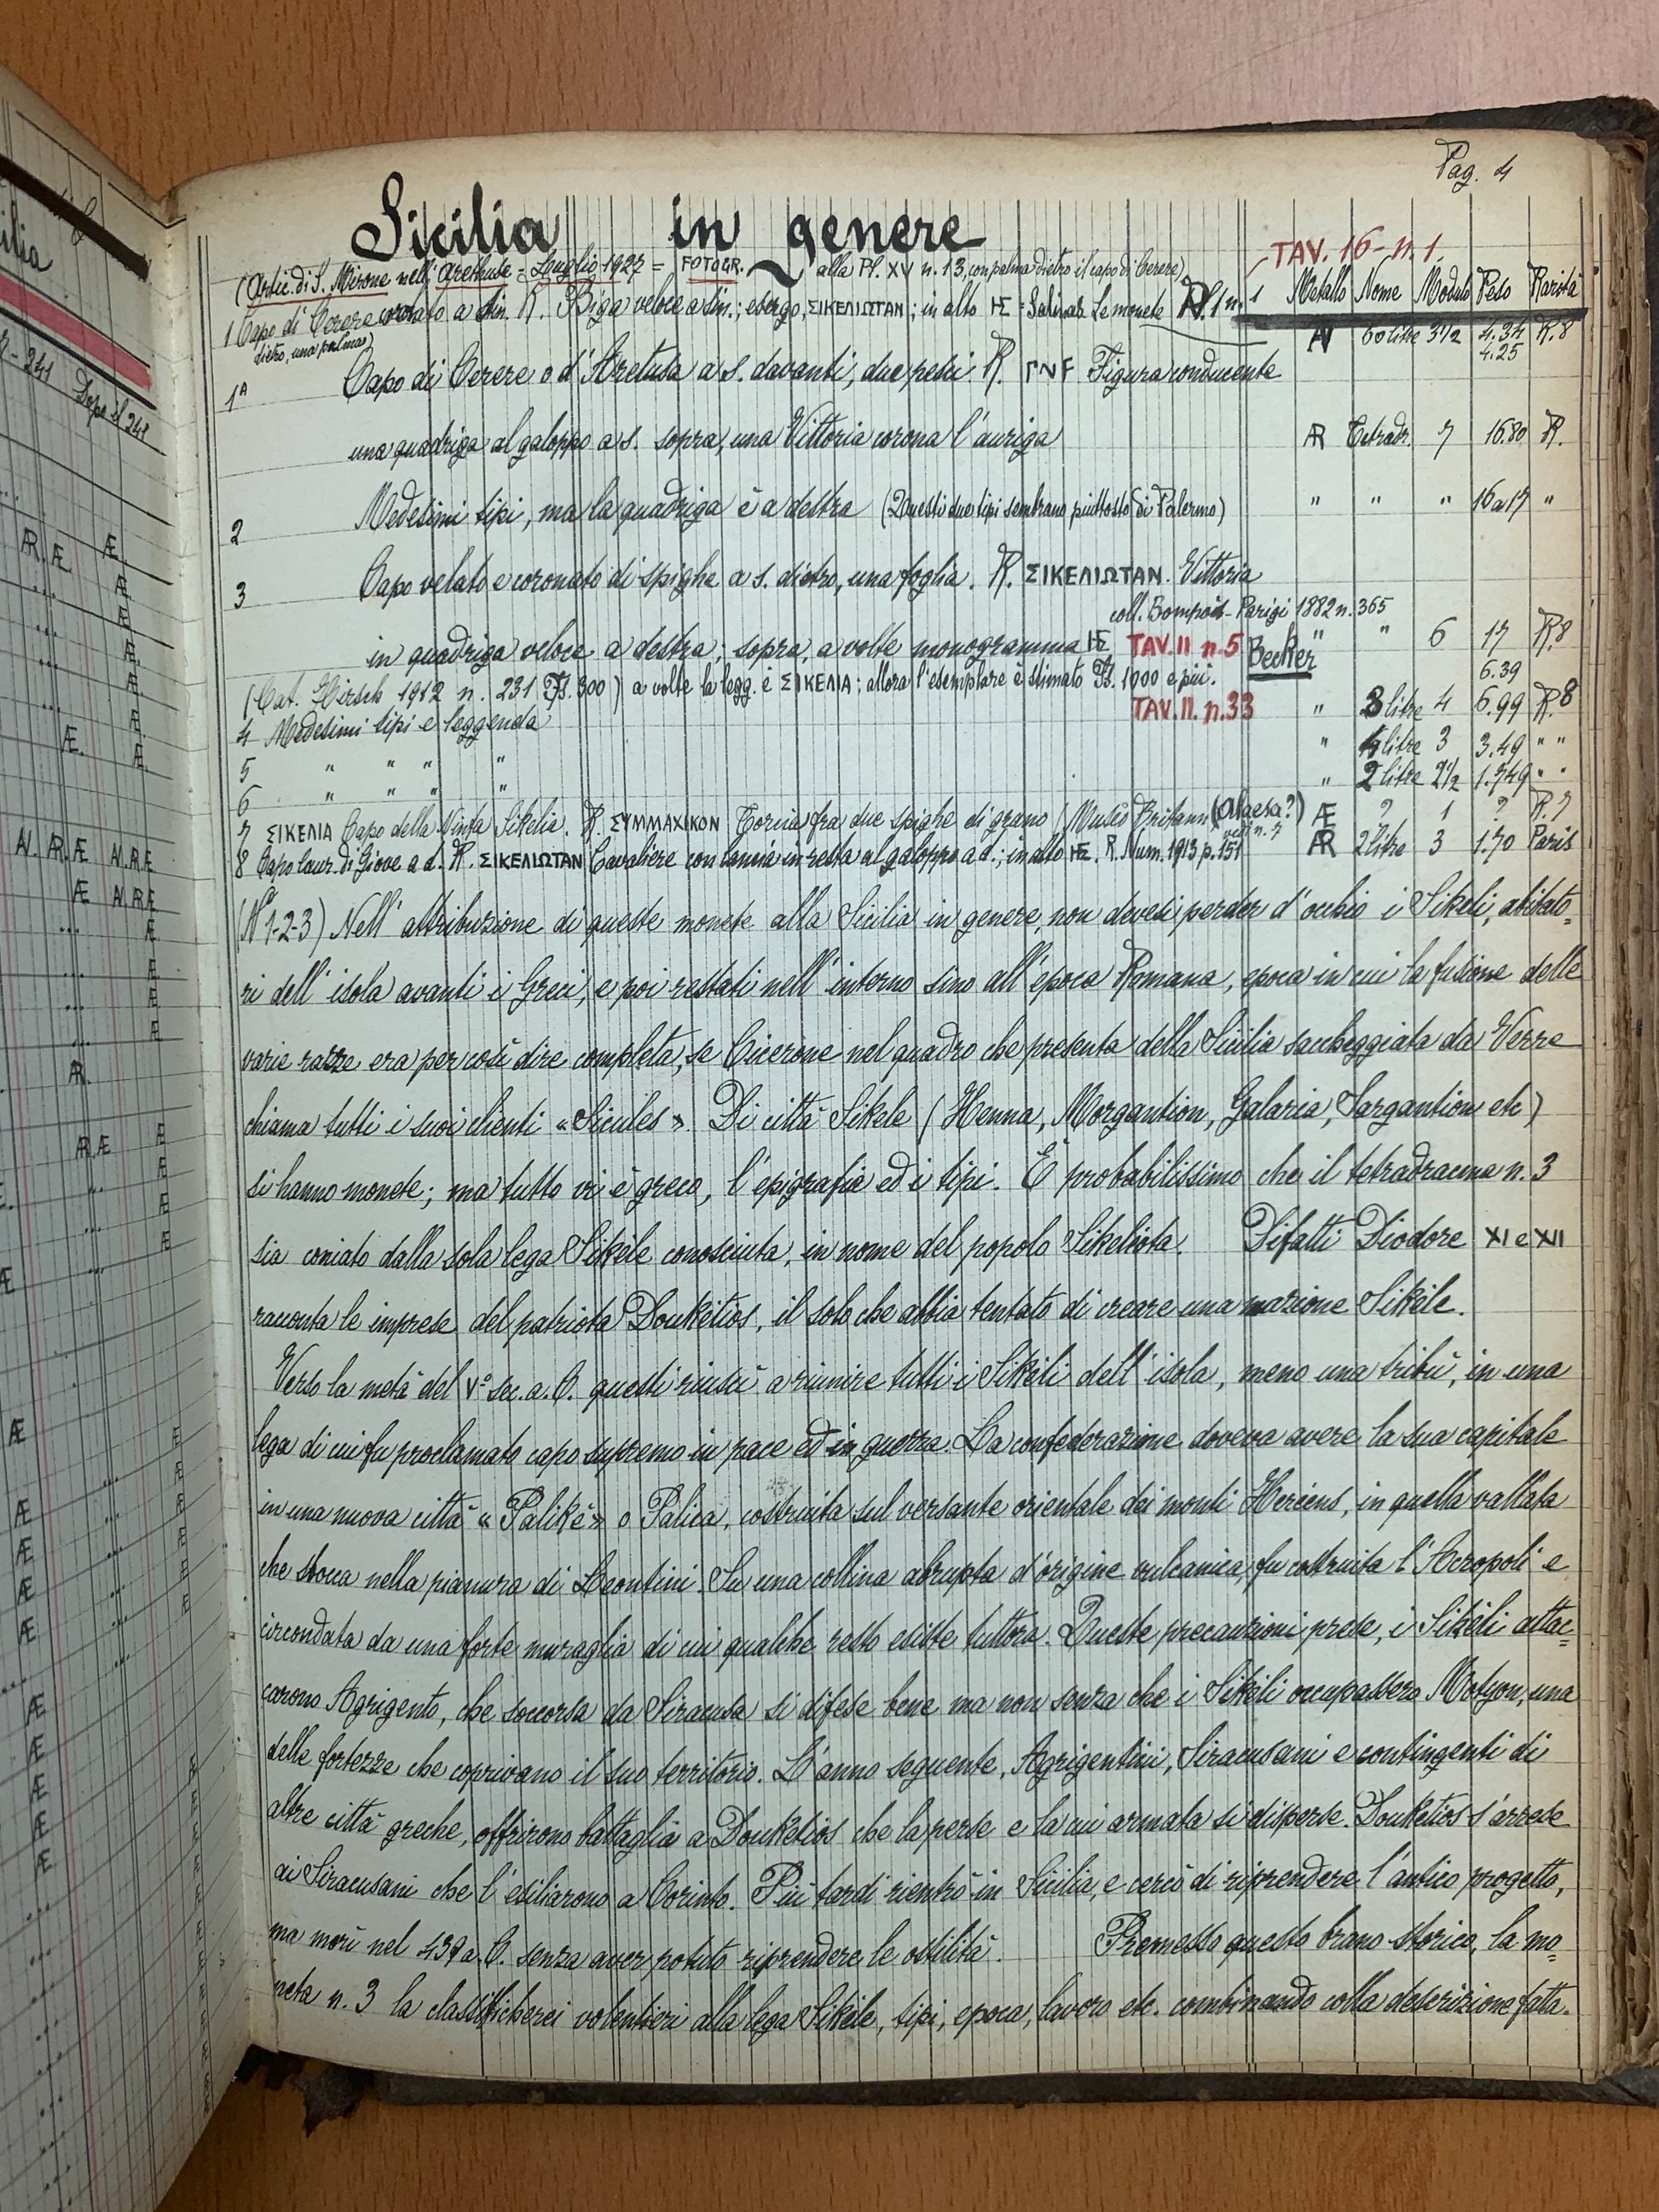 Pag. 4
Sicilia in genere
TAV. 16 - n. 1.
(Artic. di S. Mirone nell' Arethuse = Luglio 1927 = FOTOGR. alla Pl. XV n. 13, con palma dietro il capo di Cerere)
Metallo Nome Modulo Peso Rarità
1 Capo di Cerere coronato a sin. R. Biga veloce a sin.; esergo, ΣΙΚΕΛΙΩΤΑΝ; in alto = Salinas Le monete n. 1
dietro, una palma)
N 60 litre 3½ 4.34 R.8
4.25
1A Capo di Cerere o d'Aretusa a s. davanti, due pesci. R. Figura conducente
una quadriga al galoppo a s. sopra, una Vittoria corona l'auriga AR Tetradr. 7 16.80 R.
2 Medesimi tipi, ma la quadriga è a destra (Questi due tipi sembrano piuttosto di Palermo) " " " 16 a 17 "
3 Capo velato e coronato di spighe a s. dietro, una foglia. R. ΣΙΚΕΛΙΩΤΑΝ. Vittoria
coll. Bompois - Parigi 1882 n. 365
in quadriga veloce a destra; sopra, a volte monogramma TAV. II n. 5 Becker " " 6 17 R.8
6.39
(Cat. Hirsch 1912 n. 231 Fs. 300) a volte la legg. è ΣΙΚΕΛΙΑ; allora l'esemplare è stimato Fs. 1000 e più.
4 Medesimi tipi e leggenda TAV. II. n. 33 " 8 litre 4 6.99 R.8
5 " " " " " 4 litre 3 3.49 " "
6 " " " " " 2 litre 2½ 1.749 " "
7 ΣΙΚΕΛΙΑ Capo della Ninfa Sikelia. R. ΣΥΜΜΑΧΙΚΟΝ Torcia fra due spighe di grano (Museo Britann. (Alaesa?) Æ ? 1 ? R.7
vedi n. 7
8 Capo laur. di Giove a d. R. ΣΙΚΕΛΙΩΤΑΝ Cavaliere con lancia in resta al galoppo a d.; in alto R. Num. 1913 p. 151 AR 2 litre 3 1.70 Paris
(N° 1-2-3) Nell' attribuzione di queste monete alla Sicilia in genere, non devesi perder d'occhio i Sikeli, abitato=
ri dell' isola avanti i Greci, e poi restati nell' interno sino all' epoca Romana, epoca in cui la fusione delle
varie razze era per così dire completa, se Cicerone nel quadro che presenta della Sicilia saccheggiata da Verre
chiama tutti i suoi clienti «Sicules». Di città Sikele (Henna, Morgantion, Galaria, Sargantion etc)
si hanno monete; ma tutto vi è greco, l'epigrafia ed i tipi. È probabilissimo che il tetradracma n. 3
sia coniato dalla sola lega Sikèle conosciuta, in nome del popolo Sikeliota. Difatti Diodore XI e XII
racconta le imprese del patriota Doukétios, il solo che abbia tentato di creare una nazione Sikèle.
Verso la metà del V° sec. a. C. questi riuscì a riunire tutti i Sikèli dell' isola, meno una tribù, in una
lega di cui fu proclamato capo supremo in pace ed in guerra. La confederazione doveva avere la sua capitale
in una nuova città «Palikè» o Palica, costruita sul versante orientale dei monti Heréens, in quella vallata
che sbocca nella pianura di Leontini. Su una collina abrupta d'origine vulcanica, fu costruita l'Acropoli e
circondata da una forte muraglia di cui qualche resto esiste tuttora. Queste precauzioni prese, i Sikèli attac=
carono Agrigento, che soccorsa da Siracusa si difese bene, ma non senza che i Sikèli occupassero Motyon, una
delle fortezze che coprivano il suo territorio. L'anno seguente, Agrigentini, Siracusani e contingenti di
altre città greche, offrirono battaglia a Doukétios che la perse e la cui armata si disperse. Doukétios s'arrese
ai Siracusani che l'esiliarono a Corinto. Più tardi rientrò in Sicilia, e cercò di riprendere l'antico progetto,
ma morì nel 439 a. C. senza aver potuto riprendere le ostilità. Premesso questo brano storico, la mo=
neta n. 3 la classificherei volentieri alla lega Sikèle, tipi, epoca, lavoro etc. combinando colla descrizione fatta.